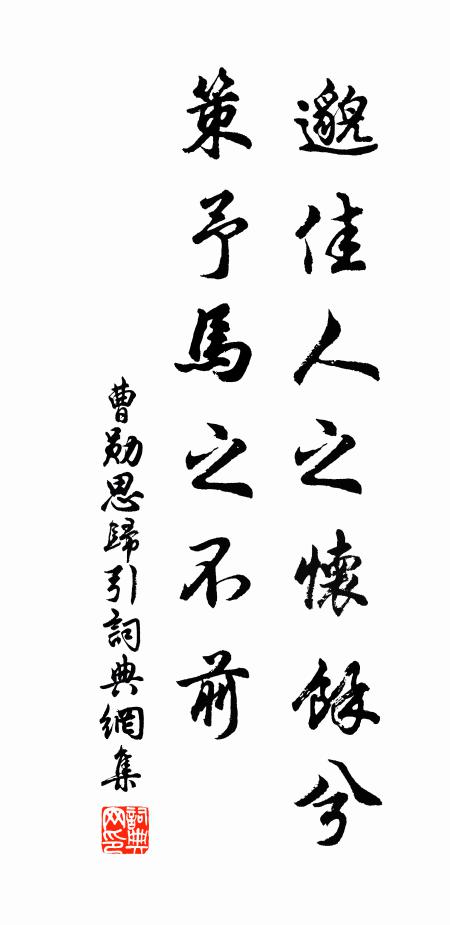 邈佳人之懷餘兮
策予馬之不前
曹勛思歸引詞典網集
詞典网印